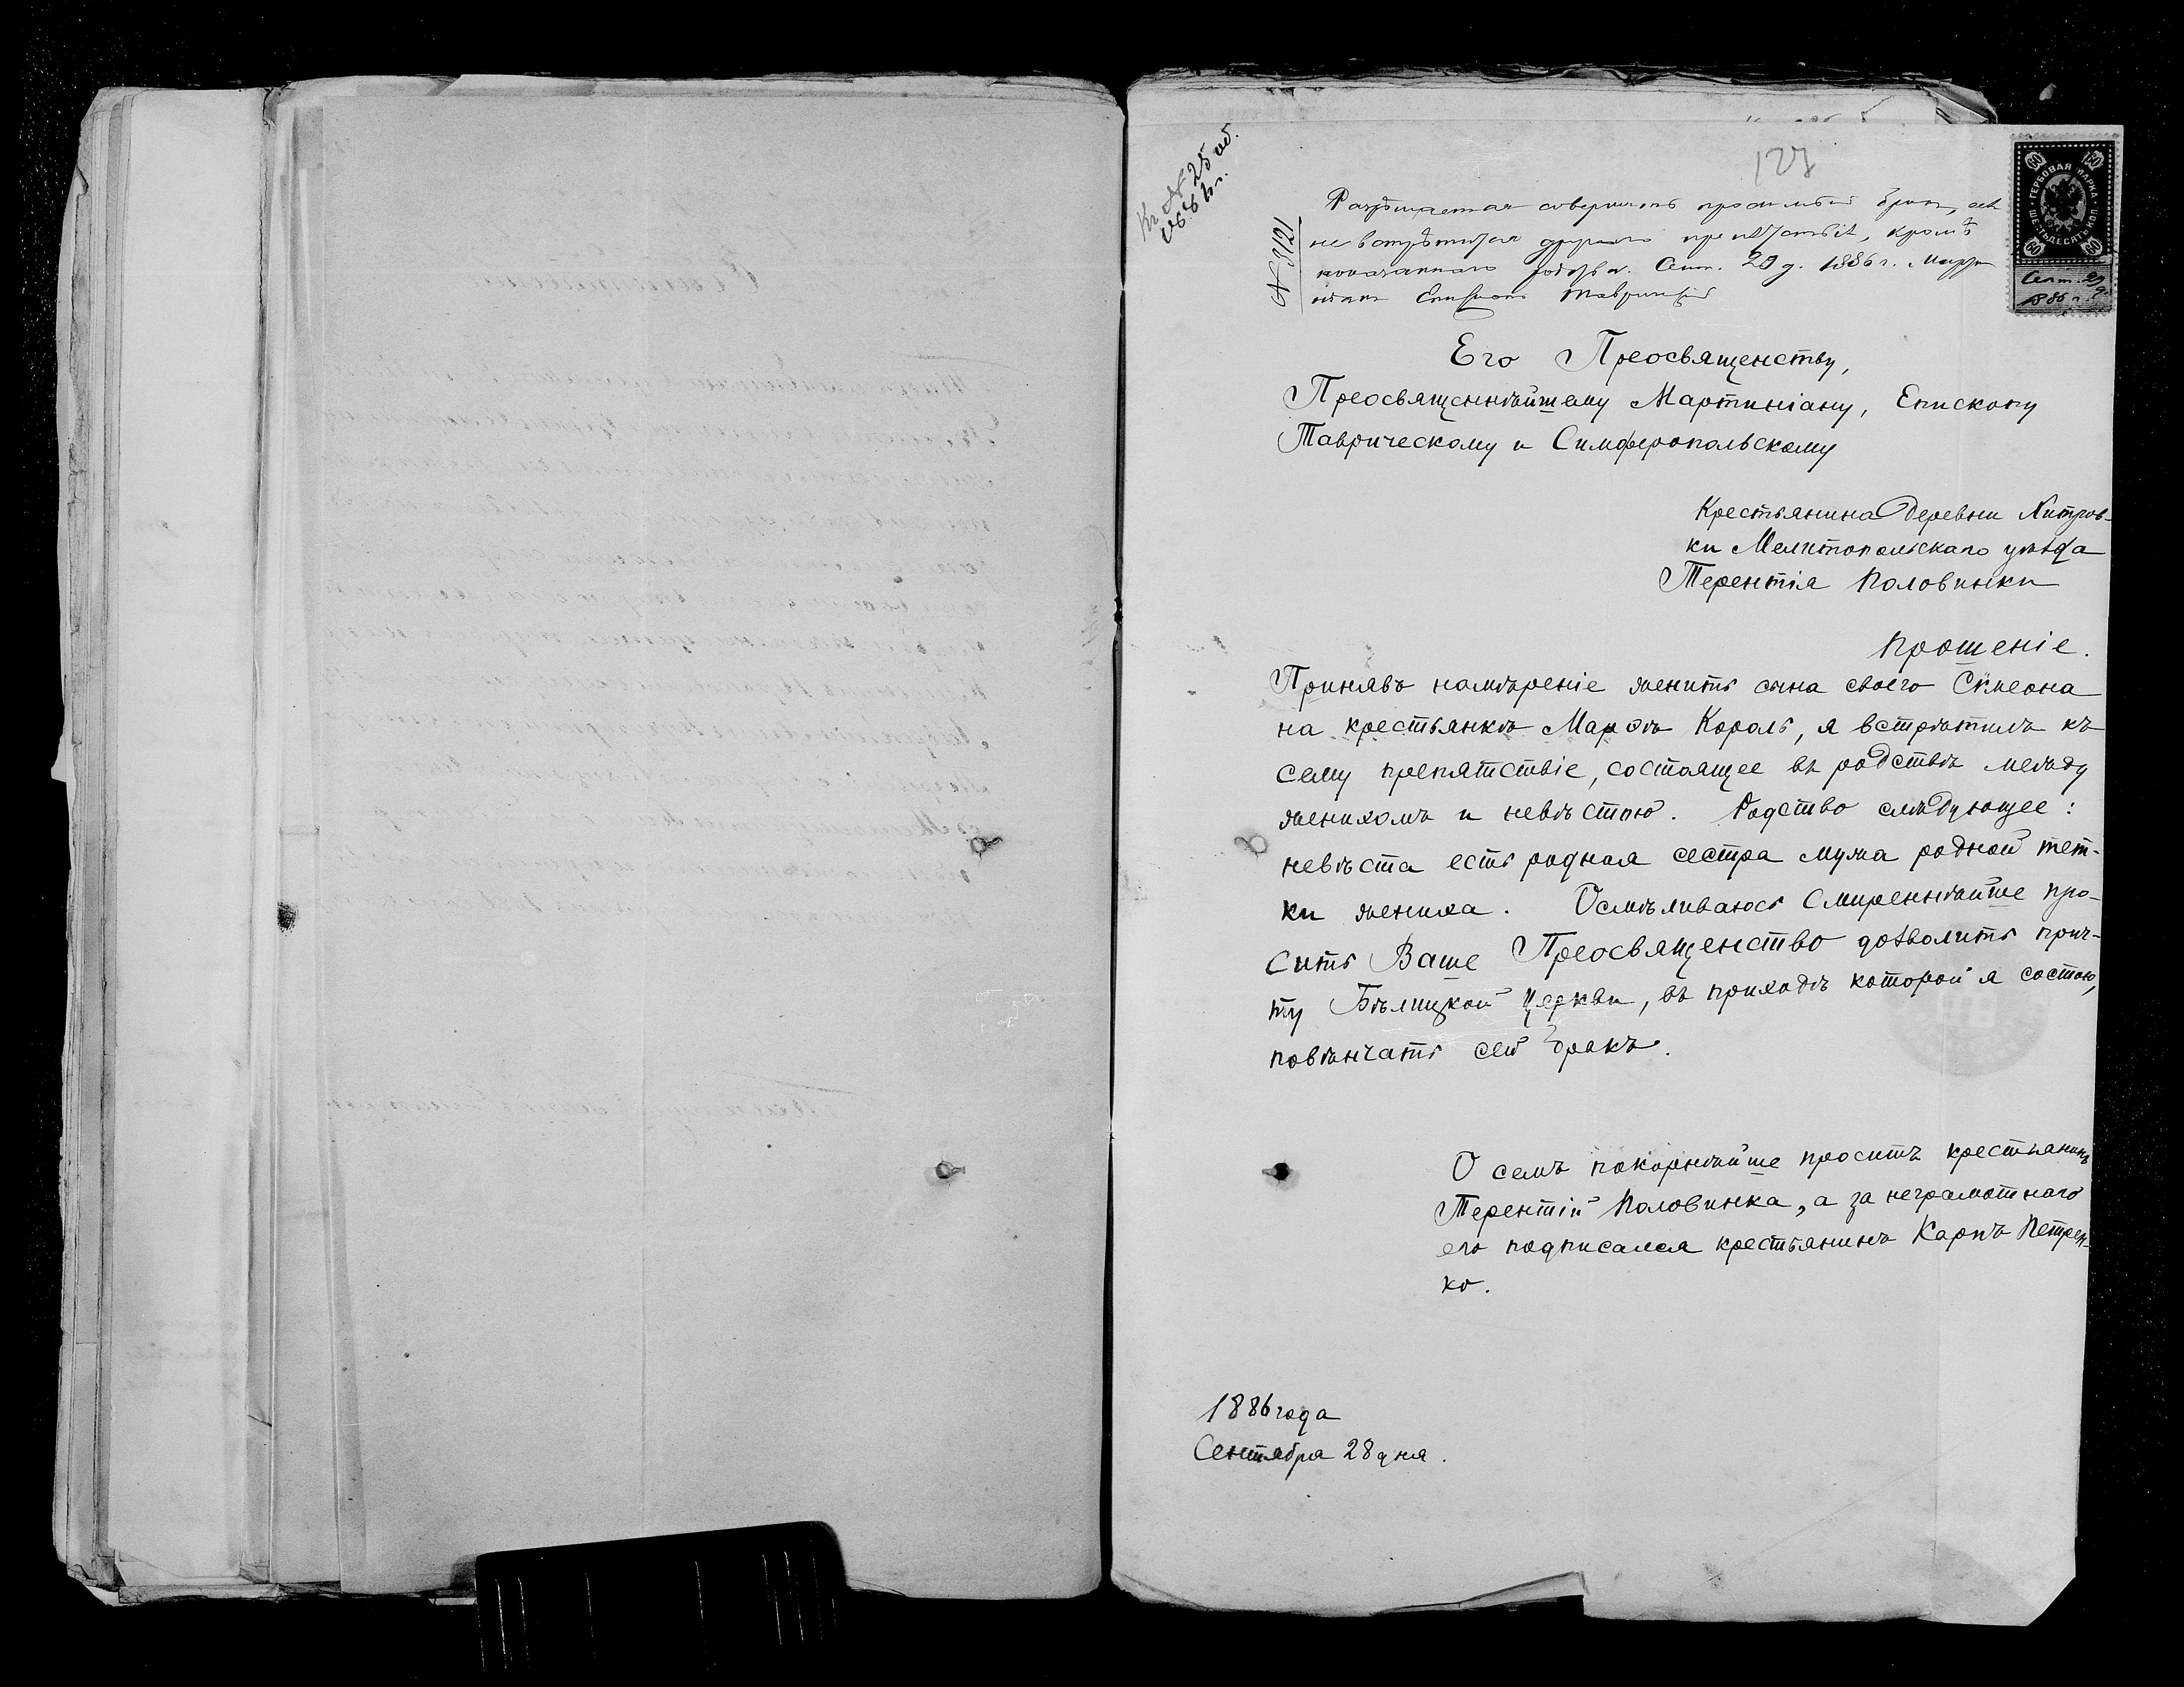 Къ № 25 об.
1886 г.
127
№ 3121
Разрѣшается совершить просимый бракъ, если
не встрѣтится другого препятствія, кромѣ
показаннаго родства. Сент. 29 д. 1886 г. Марти
ніанъ Епископъ Таврическій
ГЕРБОВАЯ МАРКА
ШЕСТЬДЕСЯТЪ КОП.
60 60
60 60
Сент. 29 д.
1886 г.
Его Преосвященству,
Преосвященнѣйшему Мартиніану, Епископу
Таврическому и Симферопольскому
Крестьянина деревни Хитров-
ки Мелитопольскаго уѣзда
Терентія Половинки
Прошеніе.
Принявъ намѣреніе женить сына своего Симеона
на крестьянкѣ Марѳѣ Король, я встрѣтилъ къ
сему препятствіе, состоящее въ родствѣ между
женихомъ и невѣстою. Родство слѣдующее:
невѣста есть родная сестра мужа родной тет-
ки жениха. Осмѣливаюсь смиреннѣйше про-
сить Ваше Преосвященство дозволить прич-
ту Бѣлицкой церкви, въ приходѣ которой я состою,
повѣнчать сей бракъ.
О семъ покорнѣйше проситъ крестьянинъ
Терентій Половинка, а за неграмотнаго
его подписался крестьянинъ Карпъ Петрен-
ко.
1886 года
Сентября 28 дня.